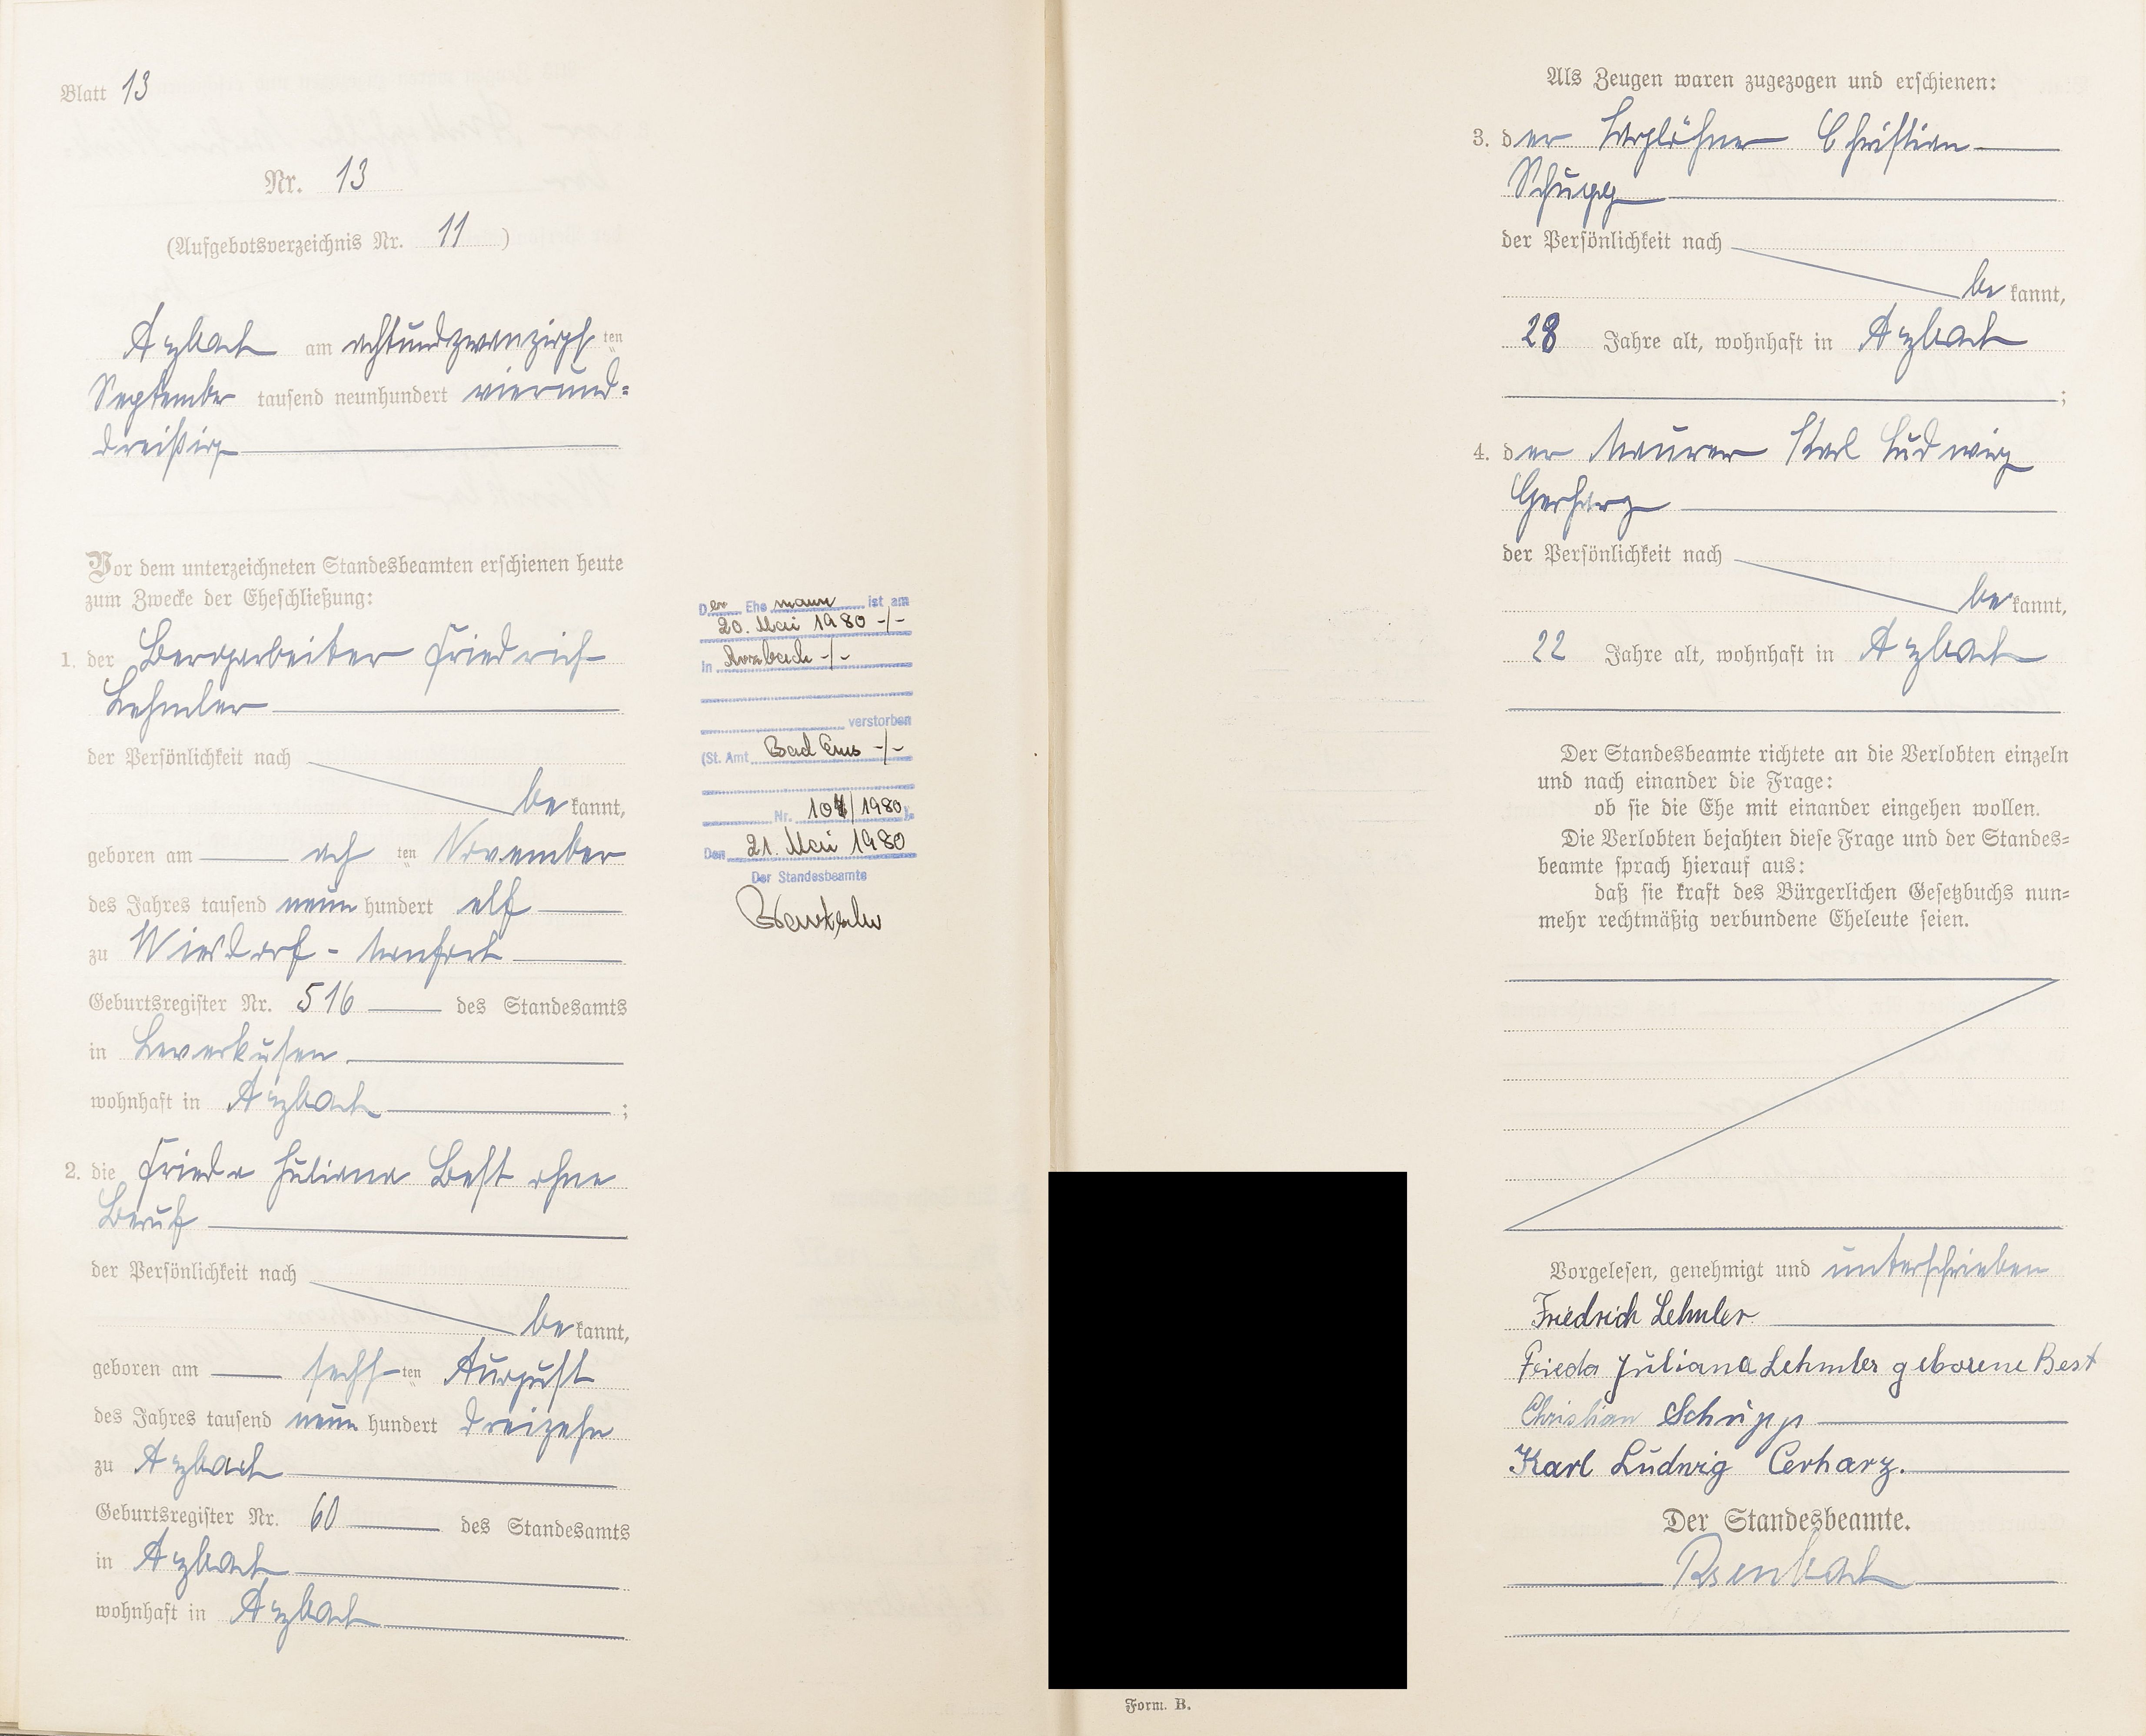 Blatt 13
Nr. 13
(Aufgebotsverzeichnis Nr. 11)
Arzbach am achtundzwanzigsten
September tausend neunhundert vierund=
dreißig
Vor dem unterzeichneten Standesbeamten erschienen heute
zum Zwecke der Eheschließung:
1. der Bergarbeiter Friedrich
Lehmler
der Persönlichkeit nach
bekannt,
geboren am achten November
des Jahres tausend neunhundert elf
zu Wiesdorf - Manfort
Geburtsregister Nr. 516 des Standesamts
in Leverkusen
wohnhaft in Arzbach;
2. die Frieda Juliana Best ohne
Beruf
der Persönlichkeit nach
bekannt,
geboren am sechsten August
des Jahres tausend neunhundert dreizehn
zu Arzbach
Geburtsregister Nr. 60 des Standesamts
in Arzbach
wohnhaft in Arzbach
Der Ehemann ist am
20. Mai 1980 -/-
in Arzbach -/-
verstorben
(St. Amt Bad Ems -/-
Nr. 107/1980).
Den 21. Mai 1980
Der Standesbeamte
Als Zeugen waren zugezogen und erschienen:
3. der Taglöhner Christian
Schupp
der Persönlichkeit nach
bekannt,
28 Jahre alt, wohnhaft in Arzbach
;
4. der Maurer Karl Ludwig
Gerharz
der Persönlichkeit nach
bekannt,
22 Jahre alt, wohnhaft in Arzbach
Der Standesbeamte richtete an die Verlobten einzeln
und nach einander die Frage:
ob sie die Ehe mit einander eingehen wollen.
Die Verlobten bejahten diese Frage und der Standes=
beamte sprach hierauf aus:
daß sie kraft des Bürgerlichen Gesetzbuchs nun=
mehr rechtmäßig verbundene Eheleute seien.
Vorgelesen, genehmigt und unterschrieben
Friedrich Lehmler
Frieda Juliana Lehmler geborene Best
Christian Schupp
Karl Ludwig Gerharz.
Der Standesbeamte.
Form. B.